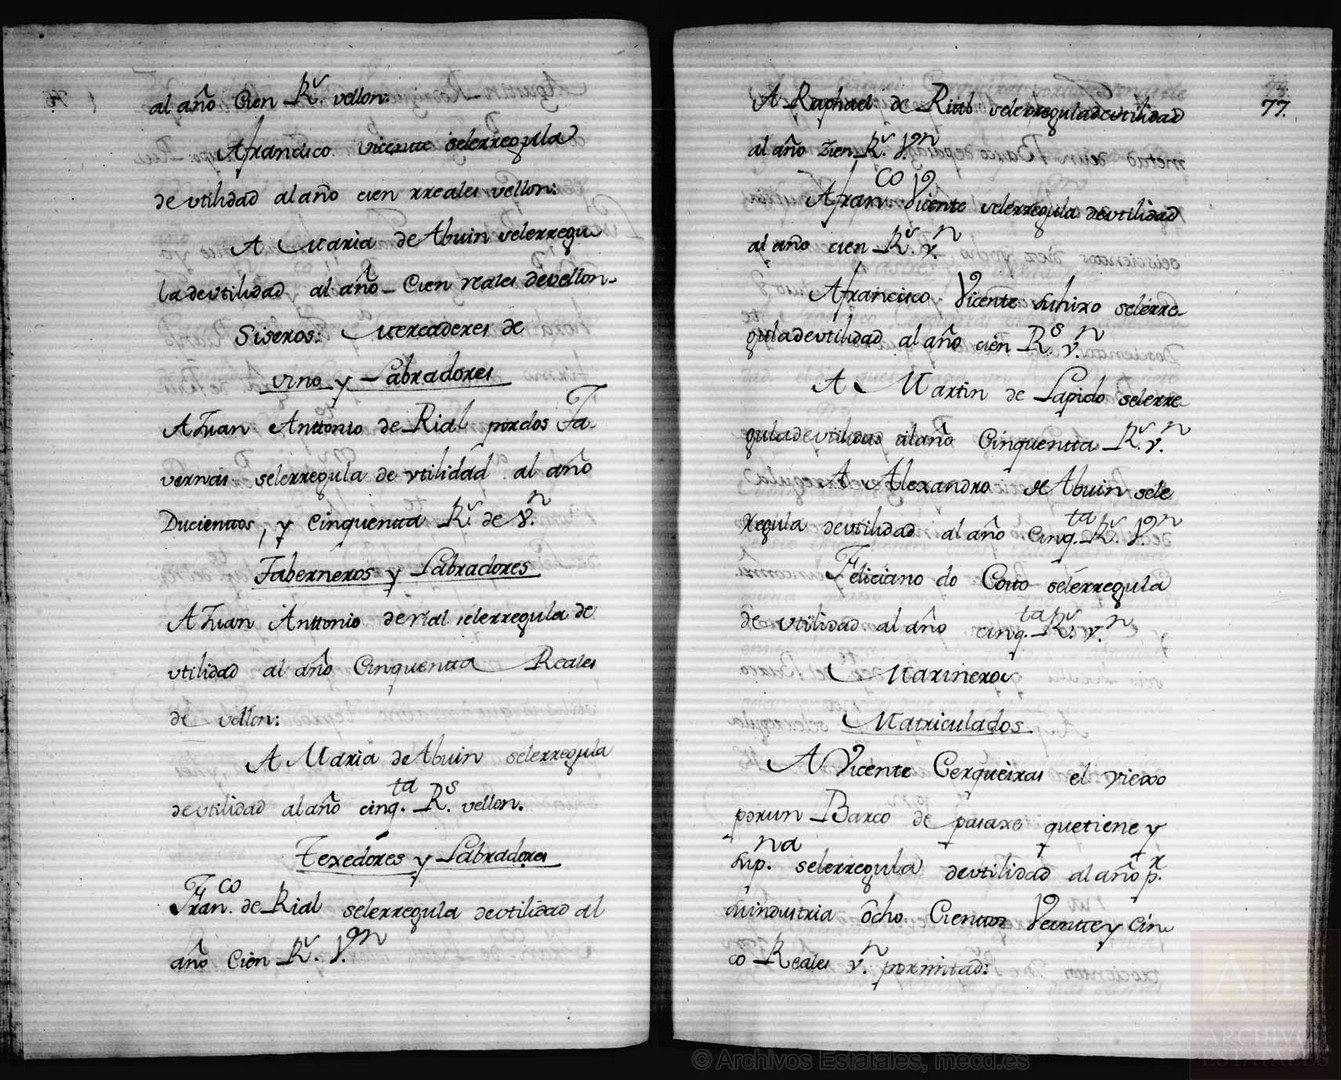 al año Cien Rs. vellon:
Afrancisco vicente selerregula
de utilidad al año cien rreales vellon:
A Maria de Abuin selerregu
la deutilidad al año - Cien reales devellon -
Siseros: Mercaderes de
vino y Labradores
A Juan Anttonio de Rial por dos Ta-
vernas selerregula de utilidad al año
Ducienttos, y Cinquenta Rs. de Vn.
Taberneros y Labradores
A Juan Anttonio de rial selerregula de
utilidad al año Cinquentta Reales
de vellon:
A Maria de Abuin selerregula
de utilidad al año cinq.ta Rs. vellon.
Texedores y Labradores
Fran.co de Rial selerregula deutilidad al
año Cien Rs. Von.
77.
A Raphael de Rial selerreguladeutilidad
al año zien Rs. Von.
Afran.co Vicente selerregula deutilidad
al año cien Rs. vn.
Afrancisco Vicente suhixo selerre
guladeutilidad al año cien Rs. vn.
A Martin de Lapido selerre
guladeutilidad alaño Cinquentta Rs. vn.
A Alexandro de Abuin sele
regula deutilidad al año Cinq.ta Rs. Von.
Feliciano do Couto selerregula
de utilidad al año cinq.ta Rs. vn.
Marineros
Matriculados
A Vicente Cerqueiras el viexo
porun Barco de paxaxe quetiene y
sup.na selerregula deutilidad al año p.r
suindustria ocho Cienttos Veintte y Cin
co Reales vn. pormitad:
© Archivos Estatales, mecd.es
AE
ARCHIVOS
ESTATALES